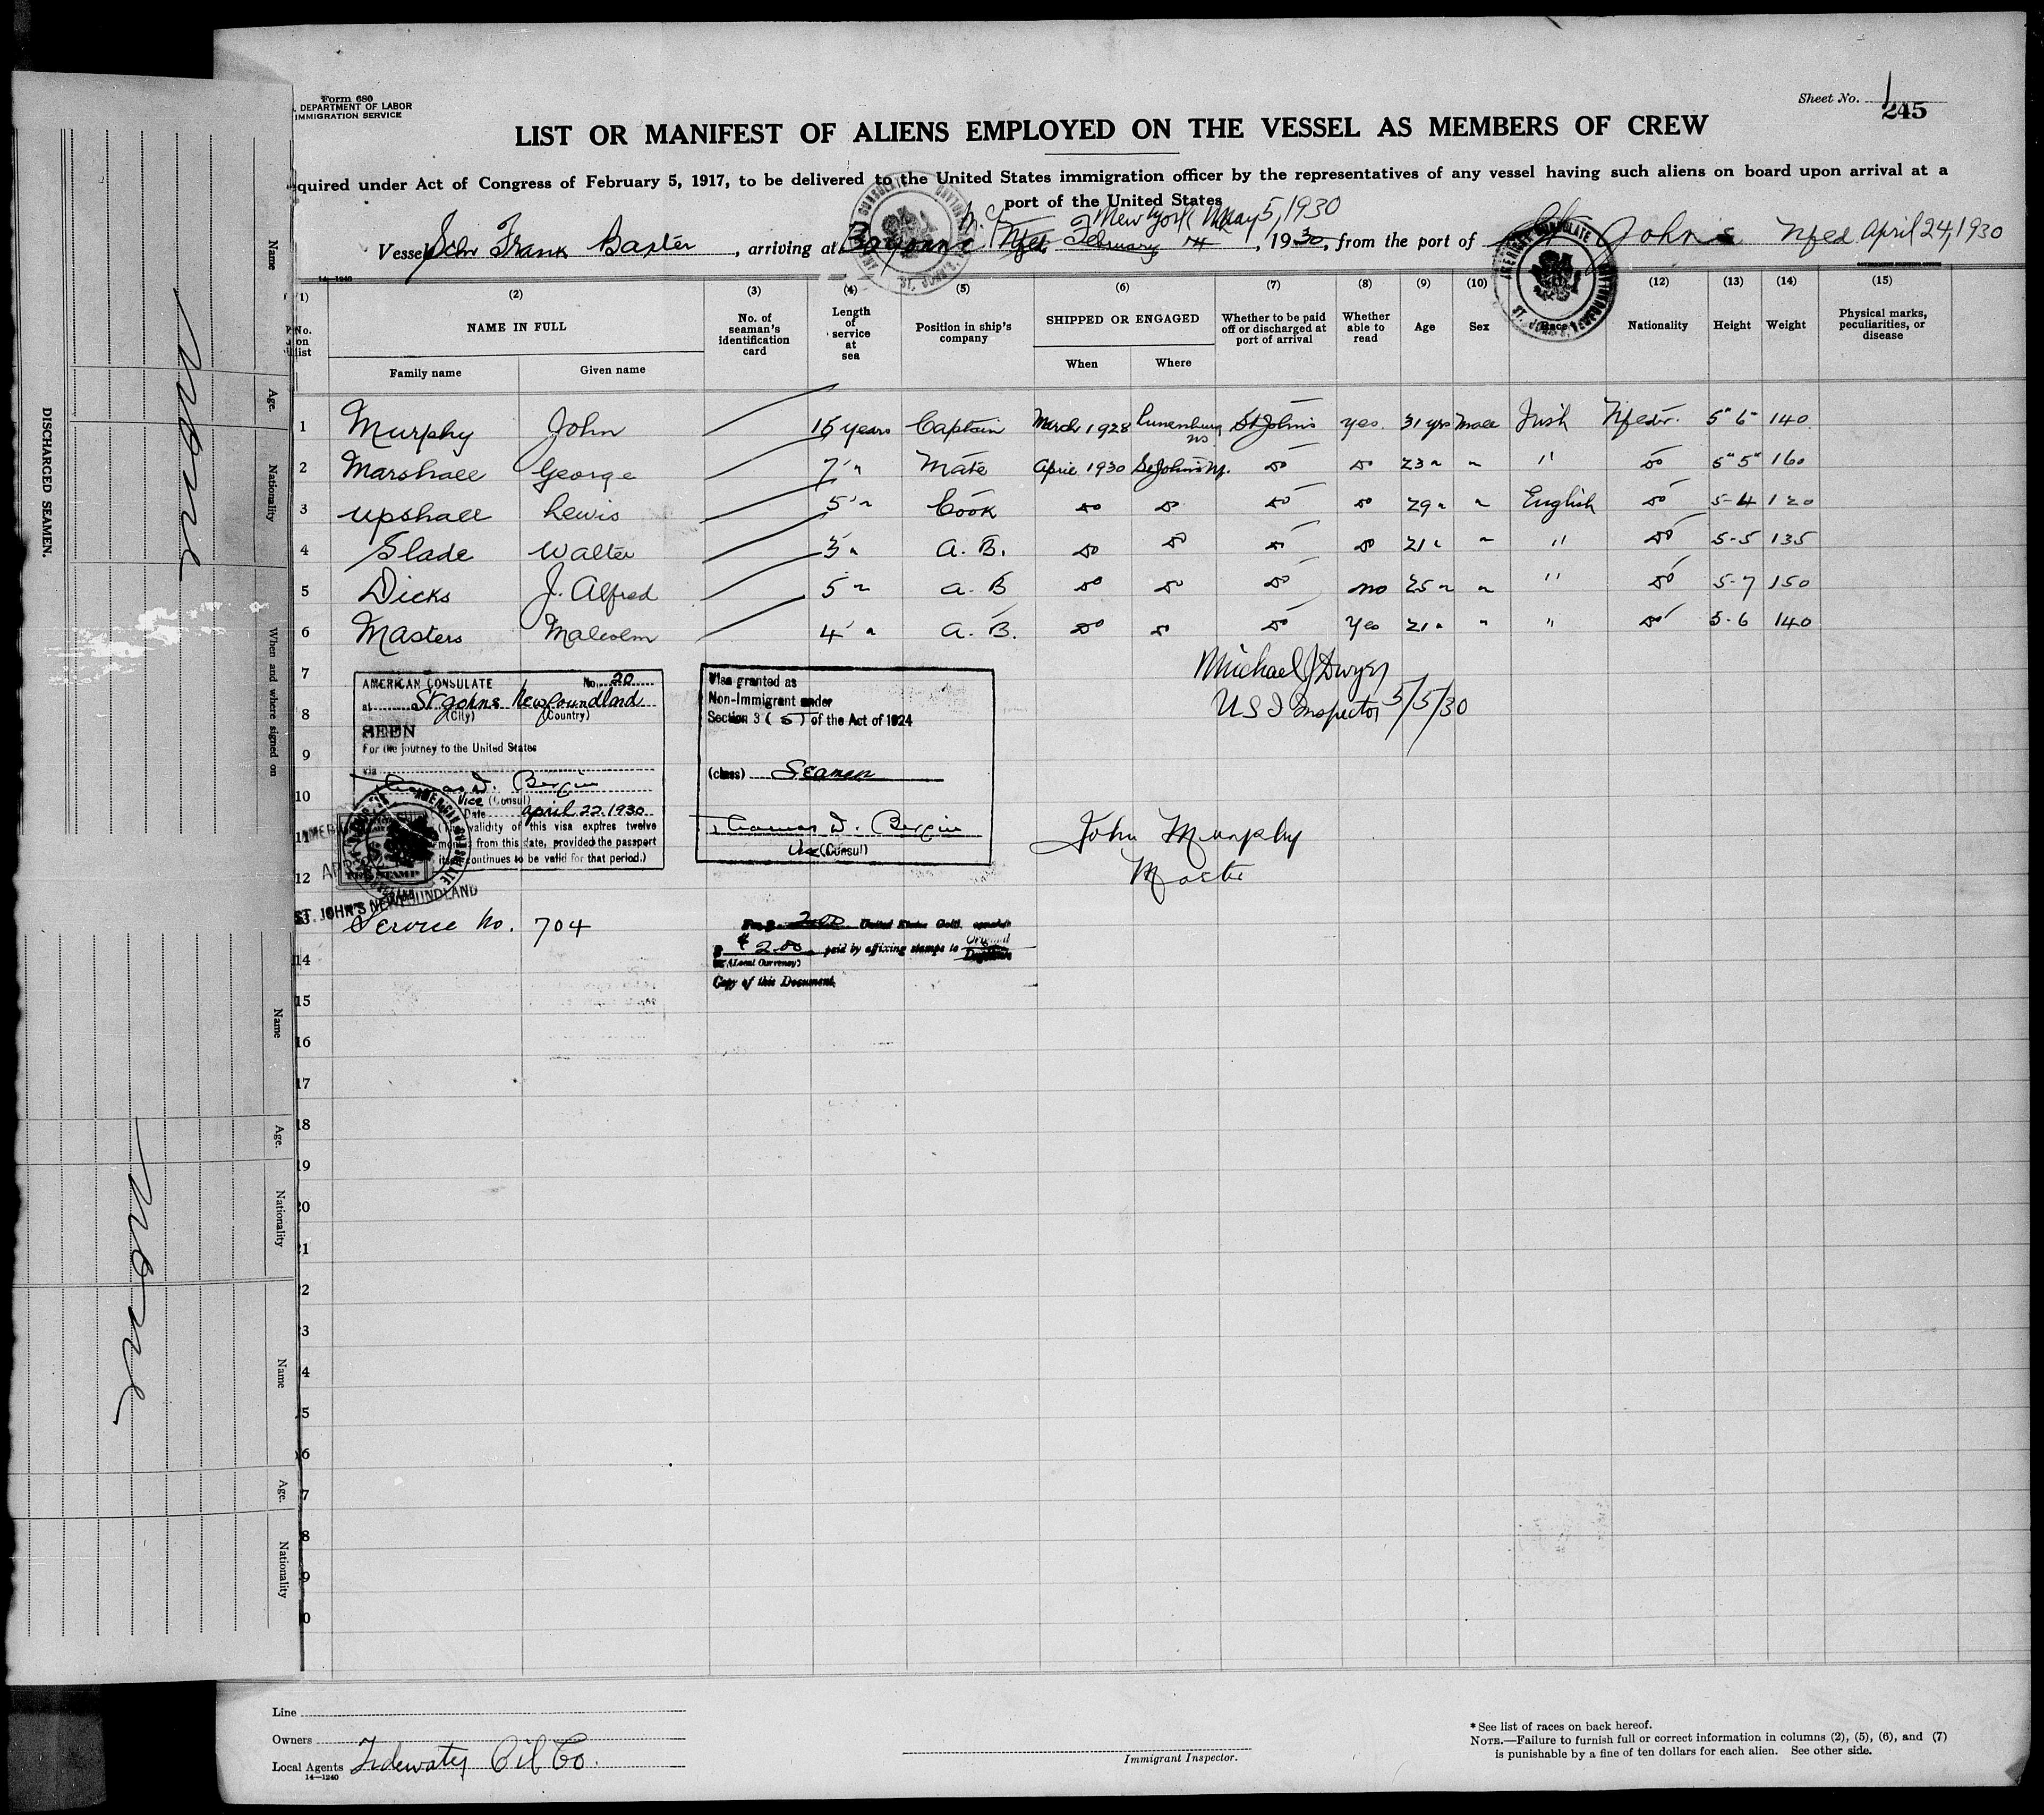 Form 680
. DEPARTMENT OF LABOR
IMMIGRATION SERVICE
Sheet No. 1
245
LIST OR MANIFEST OF ALIENS EMPLOYED ON THE VESSEL AS MEMBERS OF CREW
quired under Act of Congress of February 5, 1917, to be delivered to the United States immigration officer by the representatives of any vessel having such aliens on board upon arrival at a
port of the United States
New York May 5, 1930
Vessel Schr Frank Baxter, arriving at Bayonne N.J. Nfld February 14, 1930, from the port of St. John's Nfld April 24, 1930
14-1240
(1) (2) (3) (4) (5) (6) (7) (8) (9) (10) (12) (13) (14) (15)
No. on list
NAME IN FULL
Family name
Given name
No. of seaman's identification card
Length of service at sea
Position in ship's company
SHIPPED OR ENGAGED
When
Where
Whether to be paid off or discharged at port of arrival
Whether able to read
Age
Sex
Race
Nationality
Height
Weight
Physical marks, peculiarities, or disease
1 Murphy John 15 years Captain March 1928 Lunenburg NS St Johns yes 31 yrs male Irish Nfedr. 5" 6" 140
2 Marshall George 7 " Mate April 1930 St Johns Nf. do do 23 " " " do 5" 5" 160
3 Upshall Lewis 5 " Cook do do do do 29 " " English do 5-4 120
4 Slade Walter 3 " A. B. do do do do 21 " " " do 5-5 135
5 Dicks J. Alfred 5 " A. B do do do no 25 " " " do 5-7 150
6 Masters Malcolm 4 " A. B. do do do Yes 21 " " " do 5-6 140
7
8
9
10
11
12
13
14
15
16
17
18
19
20
21
2
3
4
5
6
7
8
9
0
Michael J Dwyer
U S I Inspector 5/5/30
AMERICAN CONSULATE No. 20
at St Johns Newfoundland
(City) (Country)
SEEN
For the journey to the United States
via
Thomas D. Bergin
Vice (Consul)
Date April 22, 1930
(The validity of this visa expires twelve
months from this date, provided the passport
itself continues to be valid for that period.)
ST. JOHN'S NEWFOUNDLAND
Visa granted as
Non-Immigrant under
Section 3 (5) of the Act of 1924
(class) Seamen
Thomas D. Bergin
Vice (Consul)
John Murphy
Master
Service No. 704
Fee $ 2.00 United States Gold,
$ 2.00 paid by affixing stamps to Original
(Local Currency) Duplicate
Copy of this Document.
DISCHARGED SEAMEN.
Name
Age.
Nationality
When and where signed on
None
Name
Age.
Nationality
None
Name
Age.
Nationality
Line
Owners
Local Agents Tidewater Oil Co.
14-1240
Immigrant Inspector.
* See list of races on back hereof.
NOTE.—Failure to furnish full or correct information in columns (2), (5), (6), and (7)
is punishable by a fine of ten dollars for each alien. See other side.